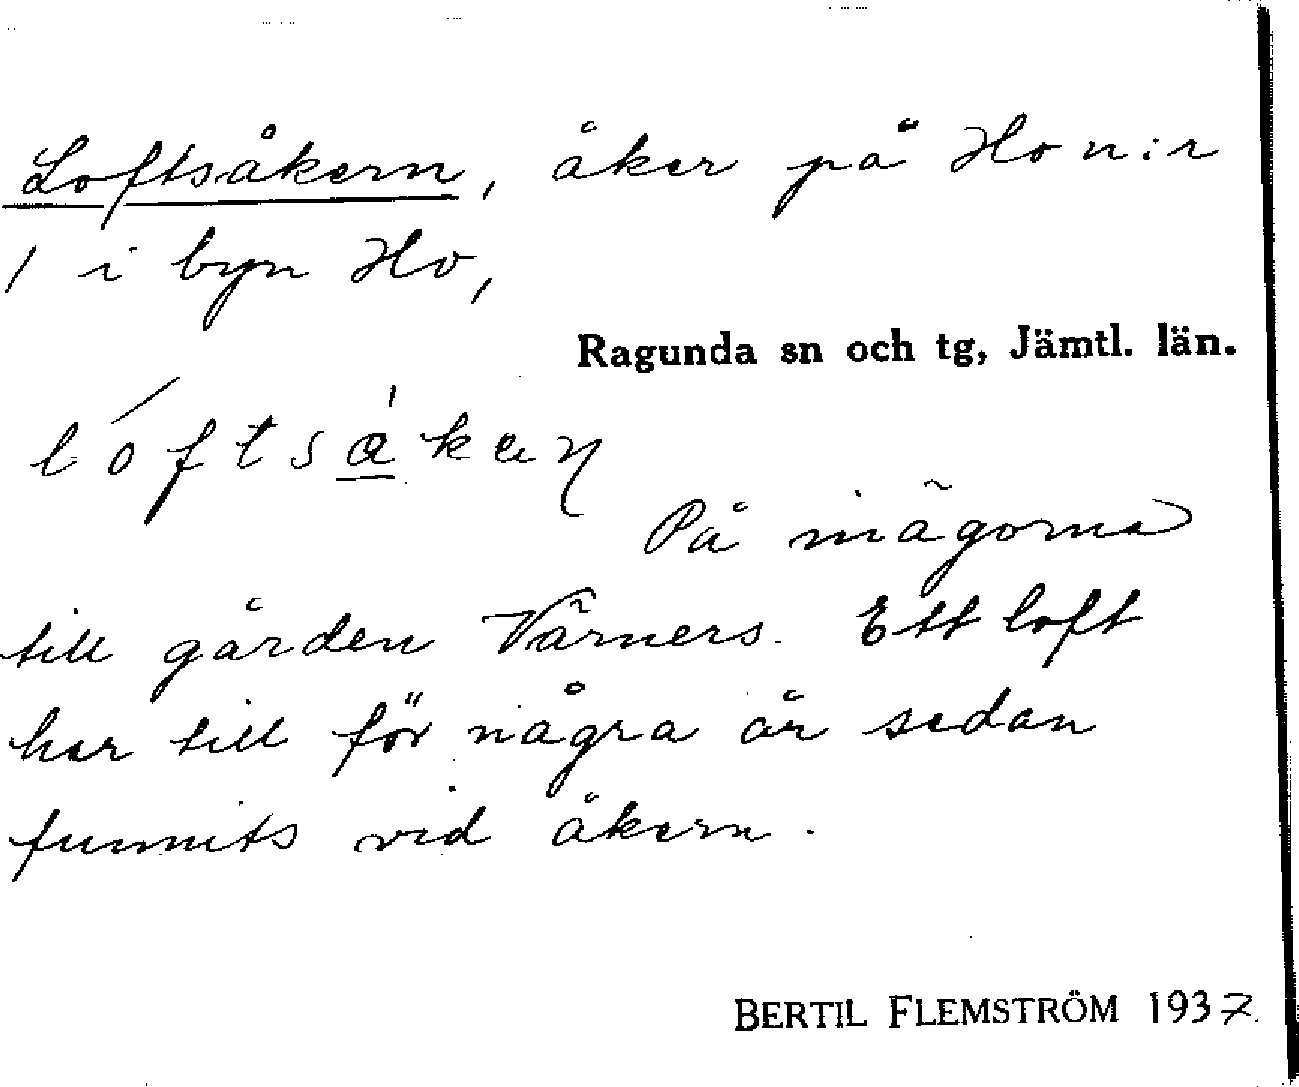 Loftsåkern, åker på Ho n:r
1 i byn Ho,
Ragunda sn och tg, Jämtl. län.
På inägorna
till gården Värners. Ett loft
har till för några år sedan
funnits vid åkern.
BERTIL FLEMSTRÖM 1937.